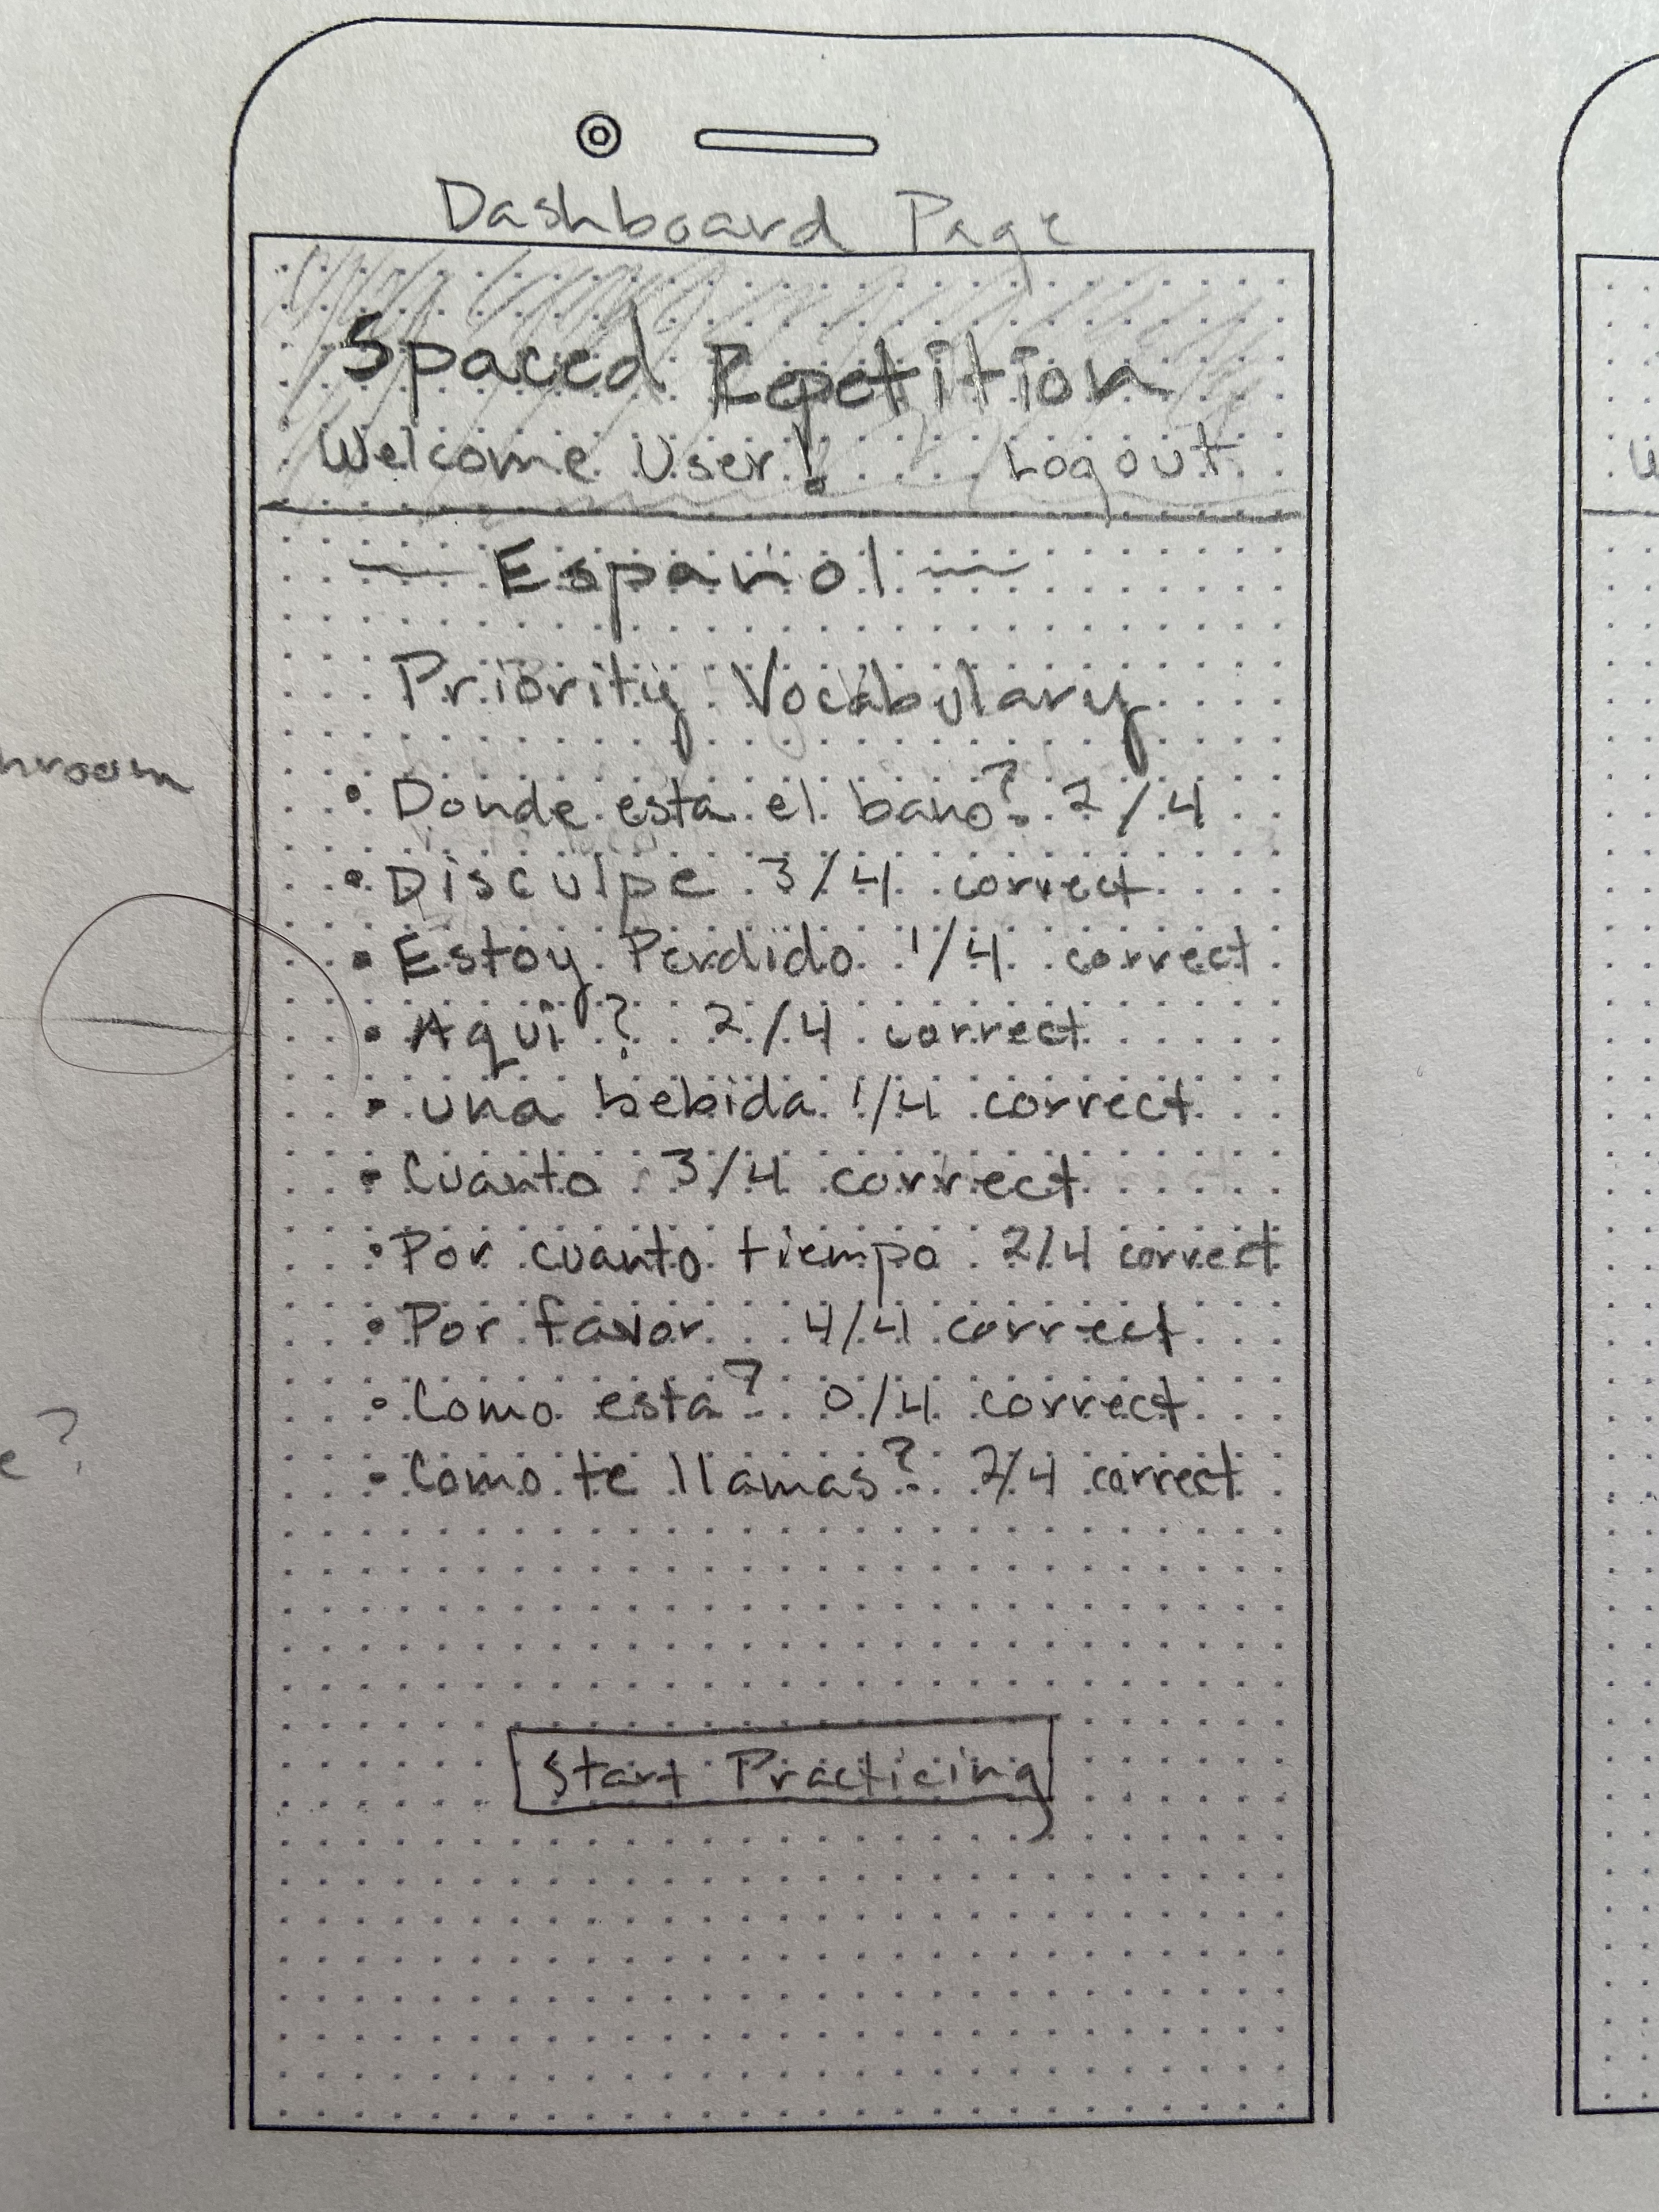 Dashboard Page
Spaced Repetition
Welcome User! Logout
Espanol
Priority Vocabulary
• Donde esta el bano? 2/4
• Disculpe 3/4 correct
• Estoy Perdido 1/4 correct
• Aqui? 2/4 correct
• una bebida 1/4 correct
• Cuanto 3/4 correct
• Por cuanto tiempo 2/4 correct
• Por favor 4/4 correct
• Como esta? 0/4 correct
• Como te llamas? 2/4 correct
Start Practicing